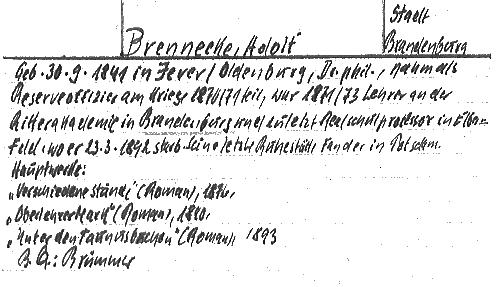 Stadt
Brennecke, Adolf Brandenburg
Geb. 30.9.1841 in Jever/Oldenburg, Dr. phil., nahm als
Reserveoffizier am Kriege 1870/71 teil, war 1871/73 Lehrer an der
Ritterakademie in Brandenburg und zuletzt Realschulprofessor in Elber=
feld, wo er 23.3.1892 starb. Seine letzte Ruhestätte fand er in Potsdam.
Hauptwerke:
"Verschiedene Stände" (Roman), 1876.
(Roman), 1880.
(Roman), 1893
B. Q.: Brümmer